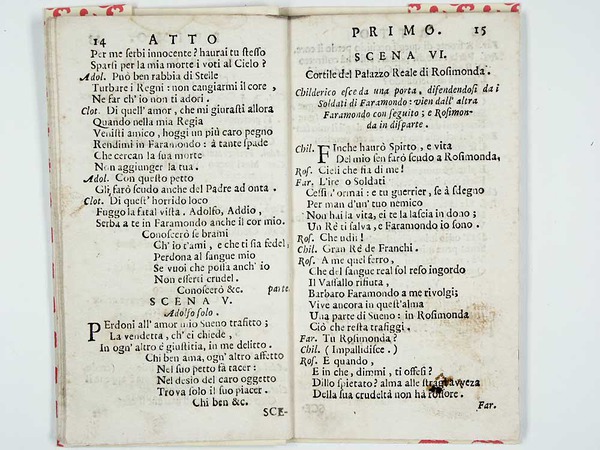 14 ATTO
Per me serbi innocente? haurai tu stesso
Sparsi per la mia morte i voti al Cielo?
Adol. Può ben rabbia di Stelle
Turbare i Regni: non cangiarmi il core,
Ne far ch' io non ti adori.
Clot. Di quell' amor, che mi giurasti allora
Quando nella mia Regia
Venisti amico, hoggi un più caro pegno
Rendimi in Faramondo: à tante spade
Che cercan la sua morte
Non aggiunger la tua.
Adol. Con questo petto
Gli farò scudo anche del Padre ad onta.
Clot. Di quest' horrido loco
Fuggo la fatal vista. Adolfo, Addio,
Serba a te in Faramondo anche il cor mio.
Conoscerò se brami
Ch' io t'ami, e che ti sia fedel,
Perdona al sangue mio
Se vuoi che possa anch' io
Non esserti crudel.
Conoscerò &c. parte
SCENA V.
Adolfo solo.
Perdoni all' amor mio Sueno trafitto;
La vendetta, ch' ei chiede,
In ogn' altro è giustitia, in me delitto.
Chi ben ama, ogn' altro affetto
Nel suo petto fà tacer:
Nel desio del caro oggetto
Trova solo il suo piacer.
Chi ben &c.
SCE-
PRIMO. 15
SCENA VI.
Cortile del Palazzo Reale di Rosimonda.
Childerico esce da una porta, difendendosi da i
Soldati di Faramondo: vien dall' altra
Faramondo con seguito; e Rosimon-
da in disparte.
Chil. Finche haurò Spirto, e vita
Del mio sen farò scudo a Rosimonda,
Ros. Cieli che sia di me!
Far. L'ire o Soldati
Cessi ormai: e tu guerrier, se à sdegno
Per man d'un' tuo nemico
Non hai la vita, ei te la lascia in dono;
Un Rè ti salva, e Faramondo io sono.
Ros. Che udii!
Chil. Gran Rè de Franchi.
Ros. A me quel ferro,
Che del sangue real sol reso ingordo
Il Vassallo rifiuta,
Barbaro Faramondo a me rivolgi;
Vive ancora in quest'alma
Una parte di Sueno: in Rosimonda
Ciò che resta trafiggi.
Far. Tu Rosimonda?
Chil. (Impallidisce.)
Ros. E quando,
E in che, dimmi, ti offesi?
Dillo spietato? alma alle stragi avvezza
Della sua crudeltà non hà rossore.
Far.